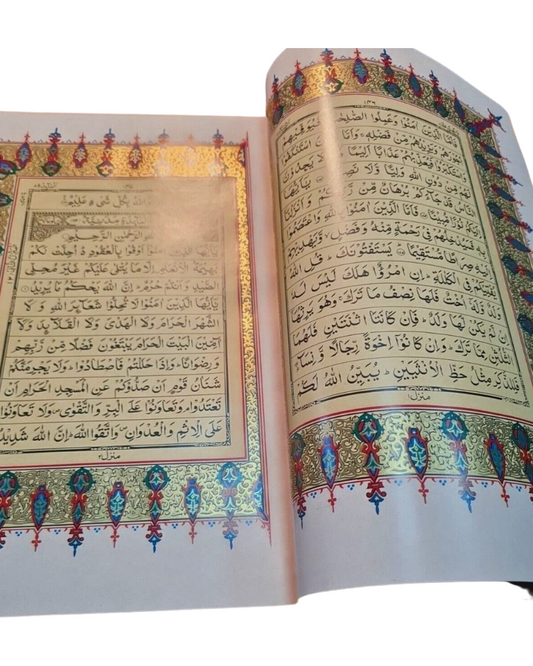 ١٣٦
فَاَمَّا الَّذِيْنَ اٰمَنُوْا وَعَمِلُوا الصّٰلِحٰتِ فَيُوَفِّيْهِمْ
اُجُوْرَهُمْ وَيَزِيْدُهُمْ مِّنْ فَضْلِهٖ ۚ وَاَمَّا الَّذِيْنَ اسْتَنْكَفُوْا
وَاسْتَكْبَرُوْا فَيُعَذِّبُهُمْ عَذَابًا اَلِيْمًا ۙ وَّلَا يَجِدُوْنَ
لَهُمْ مِّنْ دُوْنِ اللّٰهِ وَلِيًّا وَّلَا نَصِيْرًا يٰٓاَيُّهَا
النَّاسُ قَدْ جَآءَكُمْ بُرْهَانٌ مِّنْ رَّبِّكُمْ وَاَنْزَلْنَآ
اِلَيْكُمْ نُوْرًا مُّبِيْنًا فَاَمَّا الَّذِيْنَ اٰمَنُوْا بِاللّٰهِ وَاعْتَصَمُوْا
بِهٖ فَسَيُدْخِلُهُمْ فِيْ رَحْمَةٍ مِّنْهُ وَفَضْلٍ ۙ وَّيَهْدِيْهِمْ
اِلَيْهِ صِرَاطًا مُّسْتَقِيْمًا يَسْتَفْتُوْنَكَ ۗ قُلِ اللّٰهُ
يُفْتِيْكُمْ فِي الْكَلٰلَةِ ۗ اِنِ امْرُؤٌا هَلَكَ لَيْسَ لَهٗ
وَلَدٌ وَّلَهٗٓ اُخْتٌ فَلَهَا نِصْفُ مَا تَرَكَ ۚ وَهُوَ يَرِثُهَآ
اِنْ لَّمْ يَكُنْ لَّهَا وَلَدٌ ۗ فَاِنْ كَانَتَا اثْنَتَيْنِ فَلَهُمَا
الثُّلُثٰنِ مِمَّا تَرَكَ ۗ وَاِنْ كَانُوْٓا اِخْوَةً رِّجَالًا وَّنِسَآءً
فَلِلذَّكَرِ مِثْلُ حَظِّ الْاُنْثَيَيْنِ ۗ يُبَيِّنُ اللّٰهُ لَكُمْ
منزل١
اللّٰهُ بِكُلِّ شَيْءٍ عَلِيْمٌ
الرَّحْمٰنِ الرَّحِيْمِ
يٰٓاَيُّهَا الَّذِيْنَ اٰمَنُوْٓا اَوْفُوْا بِالْعُقُوْدِ ۗ اُحِلَّتْ لَكُمْ
بَهِيْمَةُ الْاَنْعَامِ اِلَّا مَا يُتْلٰى عَلَيْكُمْ غَيْرَ مُحِلِّى
الصَّيْدِ وَاَنْتُمْ حُرُمٌ ۗ اِنَّ اللّٰهَ يَحْكُمُ مَا يُرِيْدُ
يٰٓاَيُّهَا الَّذِيْنَ اٰمَنُوْا لَا تُحِلُّوْا شَعَآئِرَ اللّٰهِ وَلَا
الشَّهْرَ الْحَرَامَ وَلَا الْهَدْيَ وَلَا الْقَلَآئِدَ وَلَآ
آٰمِّيْنَ الْبَيْتَ الْحَرَامَ يَبْتَغُوْنَ فَضْلًا مِّنْ رَّبِّهِمْ
وَرِضْوَانًا ۗ وَاِذَا حَلَلْتُمْ فَاصْطَادُوْا ۗ وَلَا يَجْرِمَنَّكُمْ
شَنَاٰنُ قَوْمٍ اَنْ صَدُّوْكُمْ عَنِ الْمَسْجِدِ الْحَرَامِ اَنْ
تَعْتَدُوْا ۘ وَتَعَاوَنُوْا عَلَى الْبِرِّ وَالتَّقْوٰى ۖ وَلَا تَعَاوَنُوْا
عَلَى الْاِثْمِ وَالْعُدْوَانِ ۖ وَاتَّقُوا اللّٰهَ ۗ اِنَّ اللّٰهَ شَدِيْدُ
منزل٢